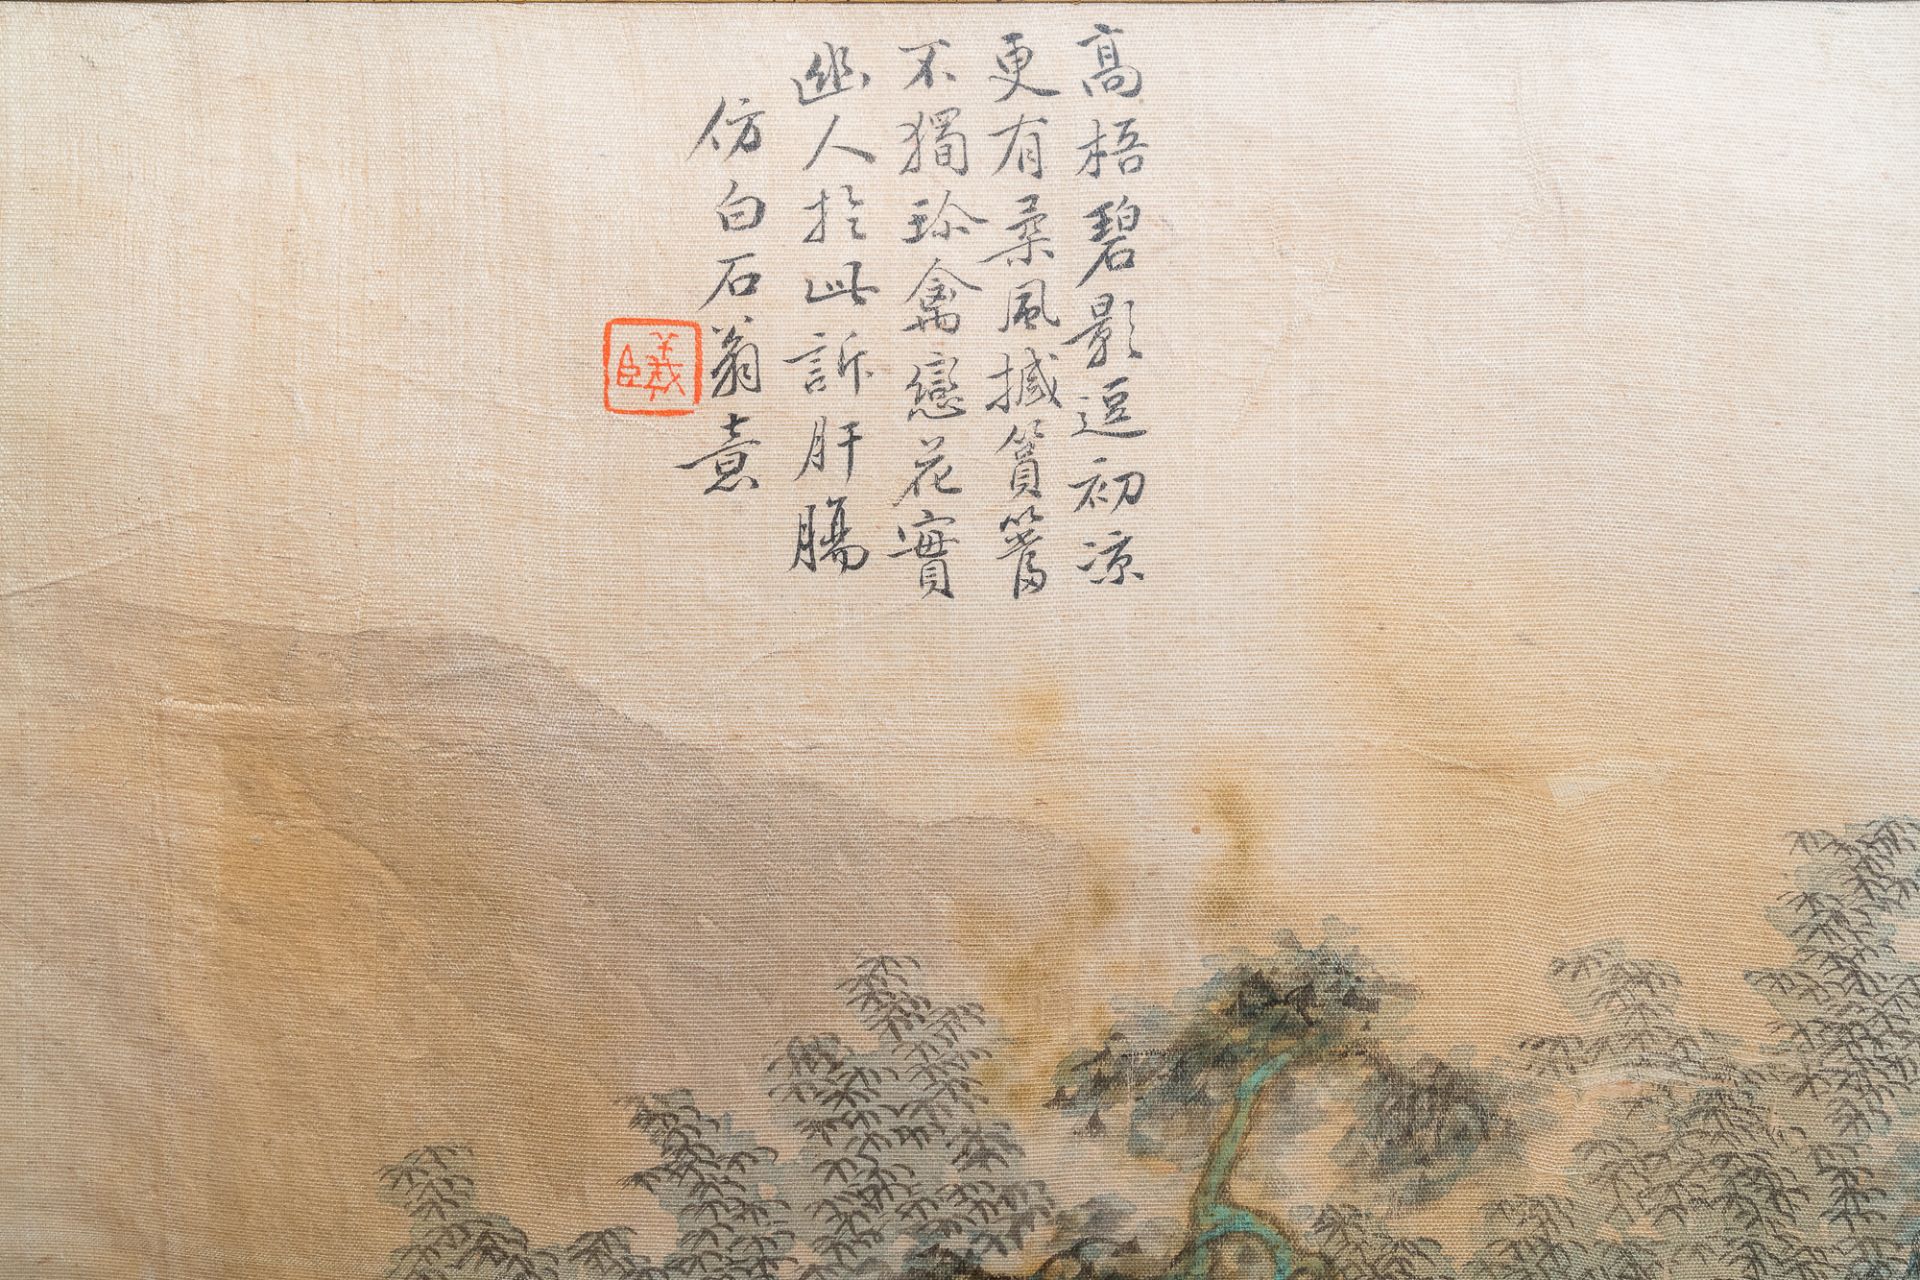 高梧碧影逗初涼
更有柔風撼篔簹
不獨珍禽戀花實
幽人於此訴肝腸
仿白石翁意
羲臣